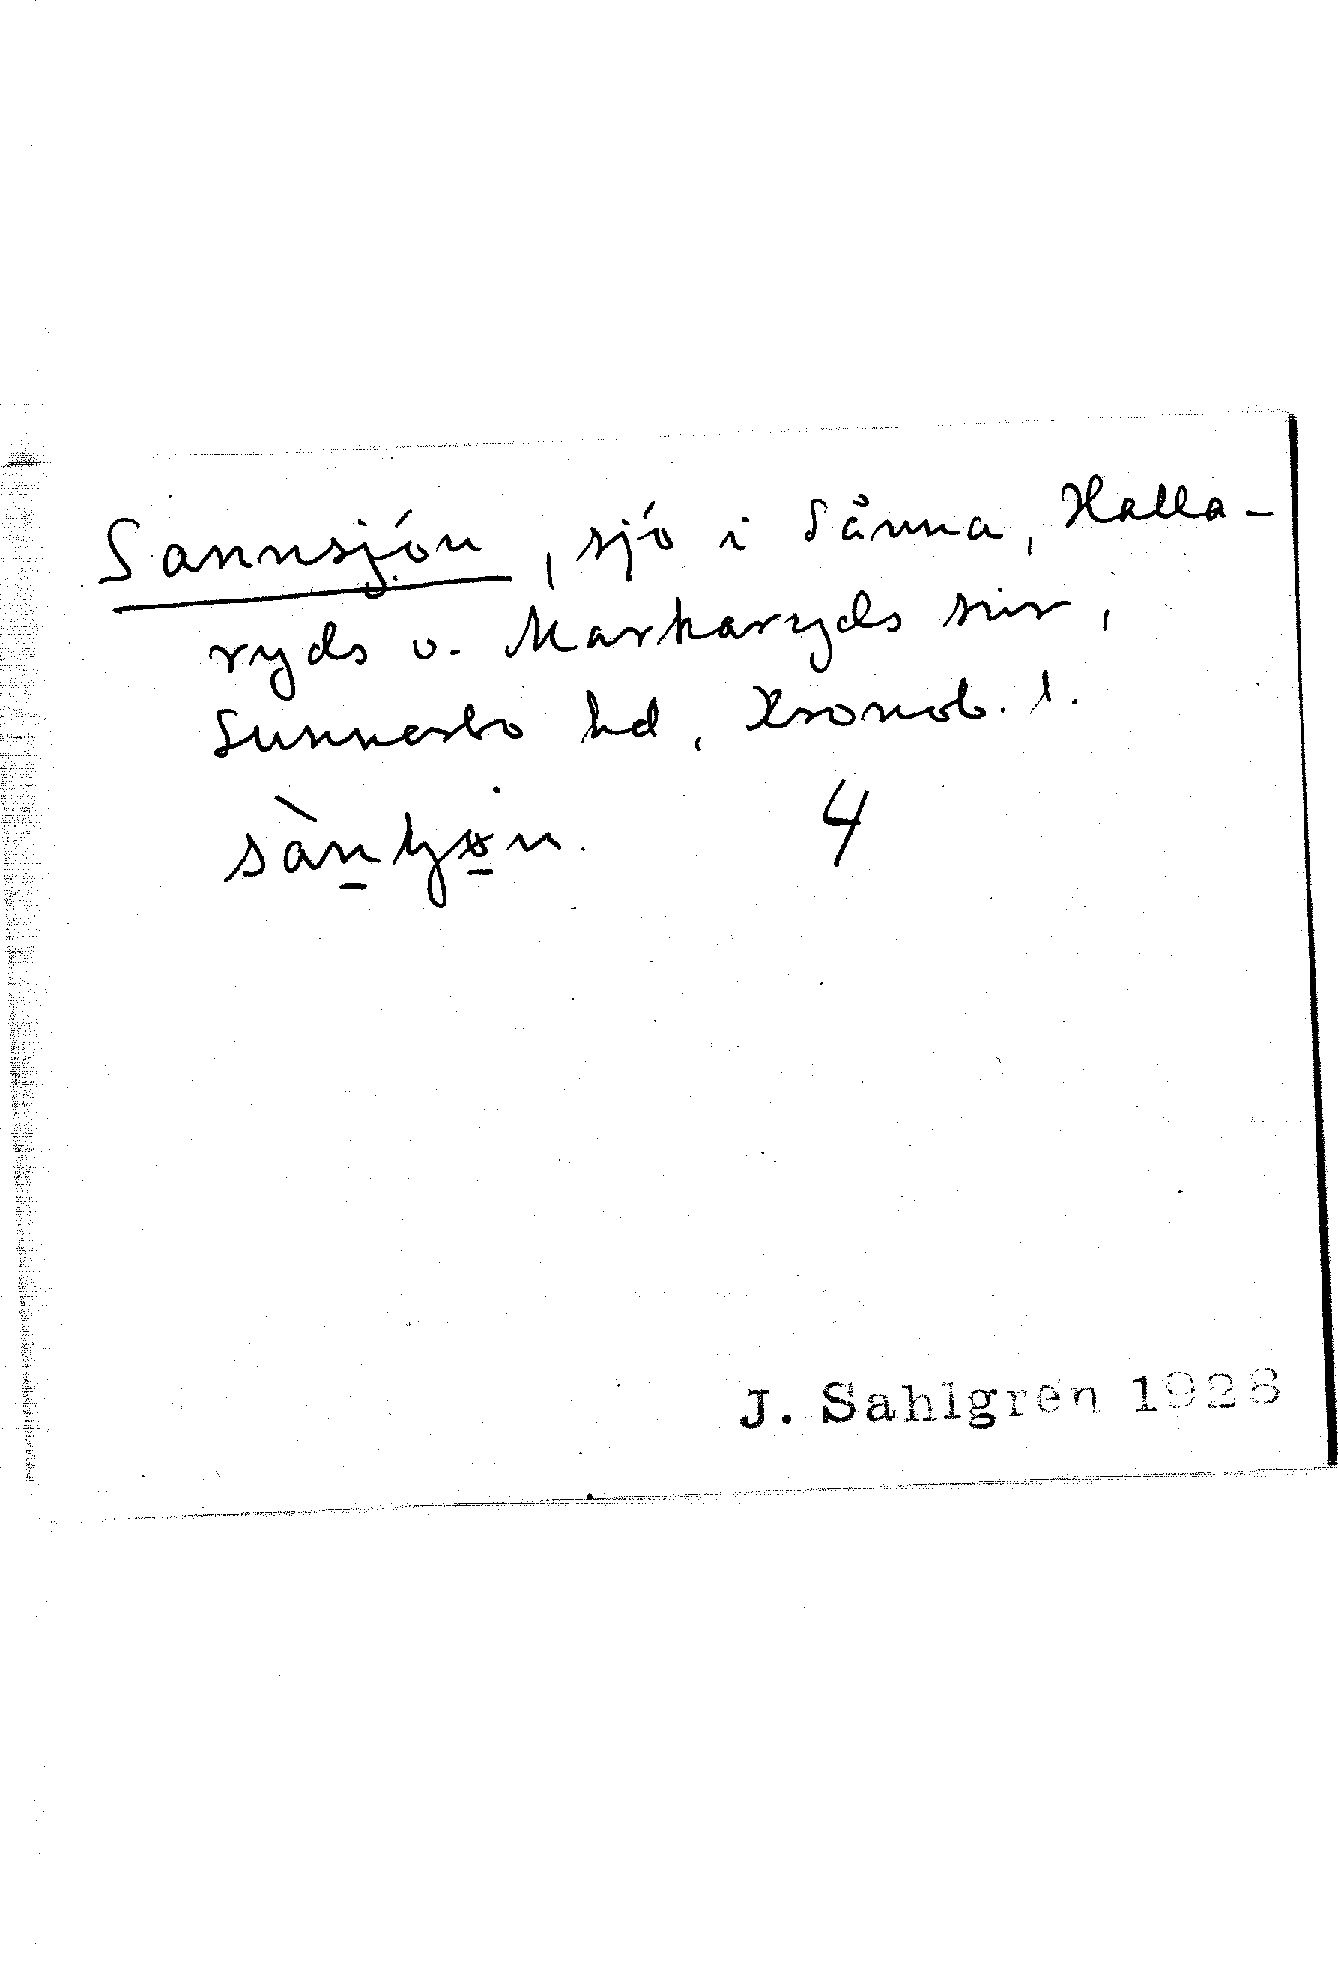 Sannsjón, sjó i Sånna, Halla-
ryds o. Markaryds snr,
Sunnerbo hd, Kronob. l.
4
J. Sahlgren 1928